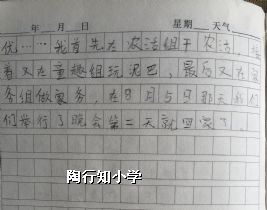 年 月 日 星期 天气
优……我首先在农活组干农活,接
着又在童趣组玩泥巴,最后又在家
务组做家务,在9月5日那天我们
们举行了晚会第二天就回家了。
陶行知小学